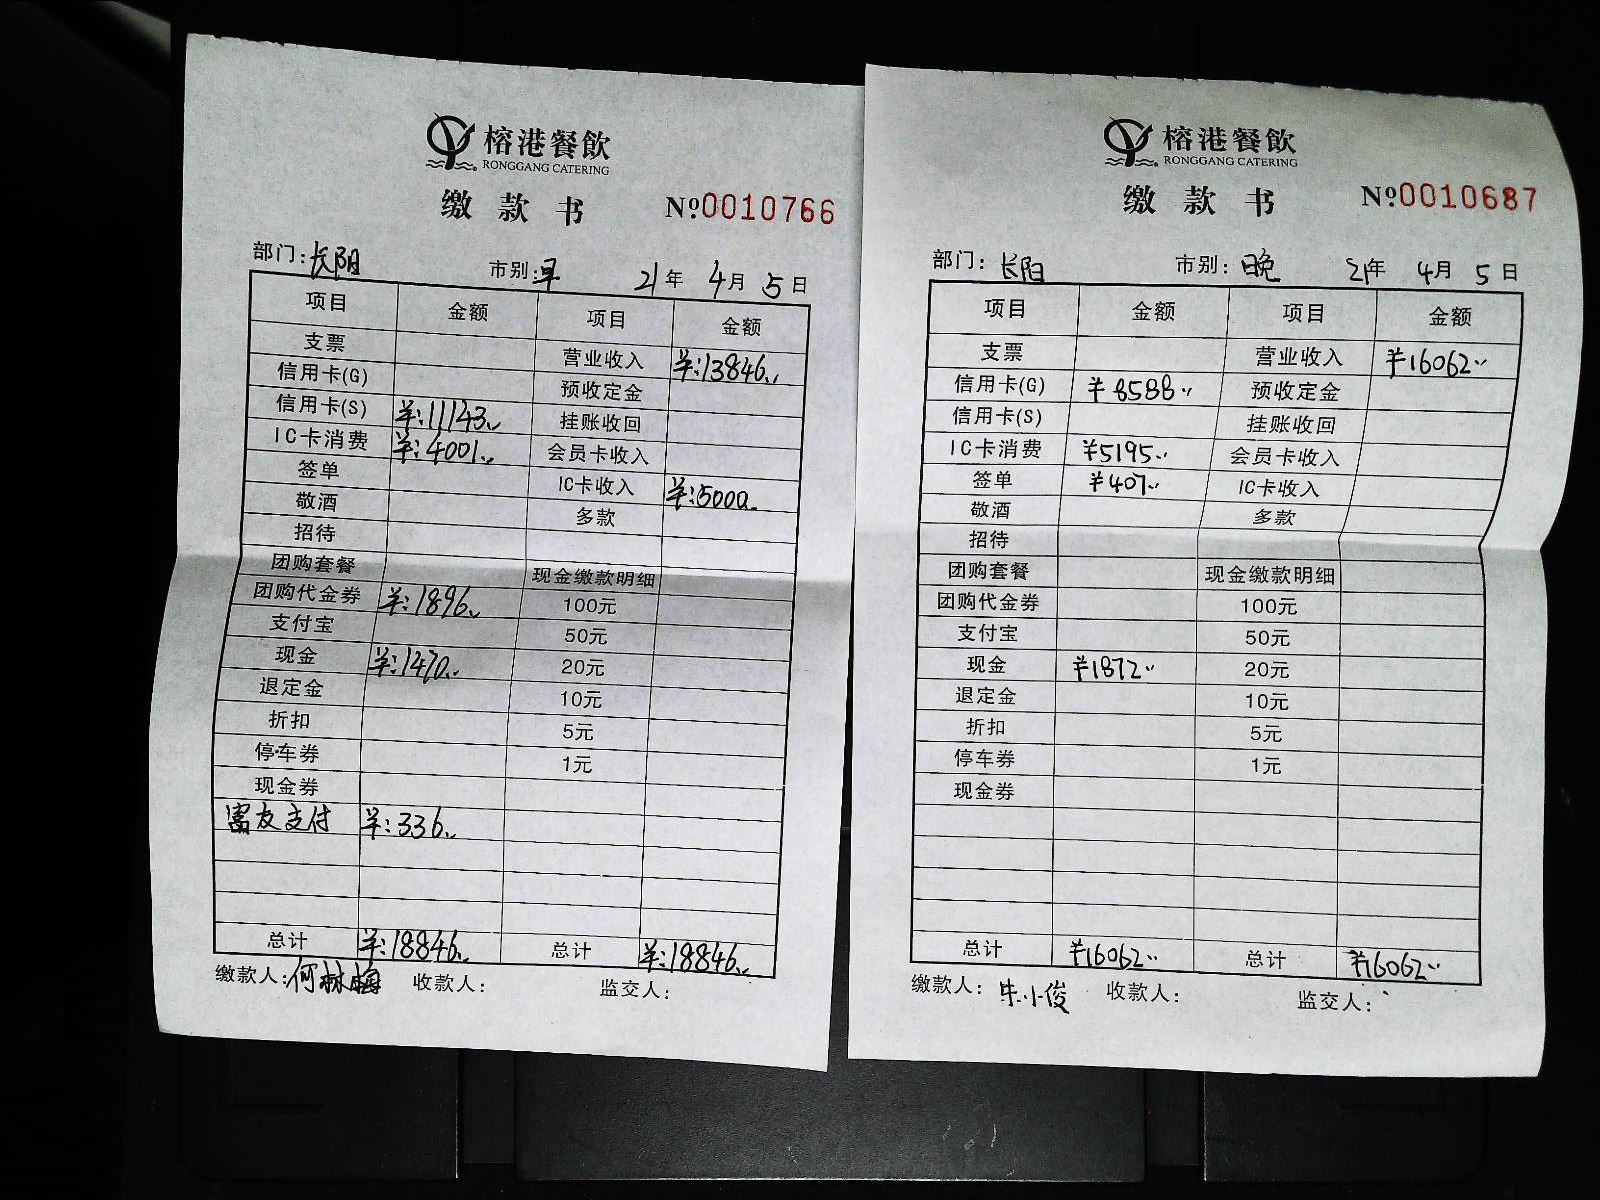 榕港餐飲
RONGGANG CATERING
缴款书 №0010766
部门:长阳 市别:早 21年 4月 5日
项目 金额 项目 金额
支票 营业收入 ¥:13846..
信用卡(G) 预收定金
信用卡(S) ¥:11143.. 挂账收回
IC卡消费 ¥:4001.. 会员卡收入
签单 IC卡收入 ¥:5000..
敬酒 多款
招待
团购套餐 现金缴款明细
团购代金券 ¥:1896.. 100元
支付宝 50元
现金 ¥:1470.. 20元
退定金 10元
折扣 5元
停车券 1元
现金券
富友支付 ¥:336..
总计 ¥:18846.. 总计 ¥:18846..
缴款人:何林梅 收款人: 监交人:
榕港餐飲
RONGGANG CATERING
缴款书 №0010687
部门:长阳 市别:晚 21年 4月 5日
项目 金额 项目 金额
支票 营业收入 ¥16062..
信用卡(G) ¥8588.. 预收定金
信用卡(S) 挂账收回
IC卡消费 ¥5195.. 会员卡收入
签单 ¥407.. IC卡收入
敬酒 多款
招待
团购套餐 现金缴款明细
团购代金券 100元
支付宝 50元
现金 ¥1872.. 20元
退定金 10元
折扣 5元
停车券 1元
现金券
总计 ¥16062.. 总计 ¥16062..
缴款人:朱小俊 收款人: 监交人: